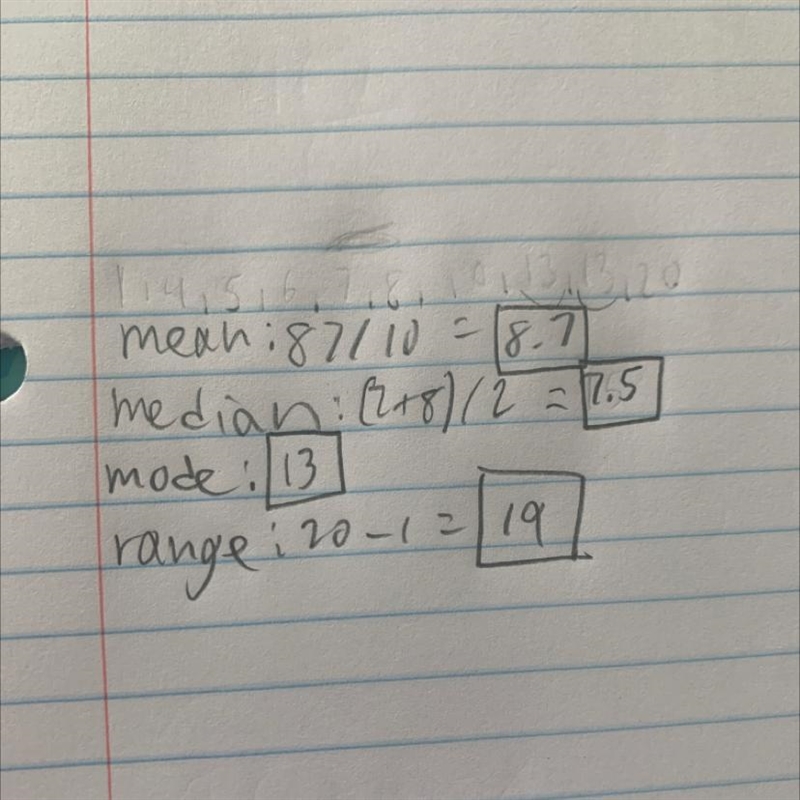 1, 4, 5, 6, 7, 8, 10, 13, 13, 20
mean: 87/10 = 8.7
median: (7+8)/2 = 7.5
mode: 13
range: 20-1 = 19